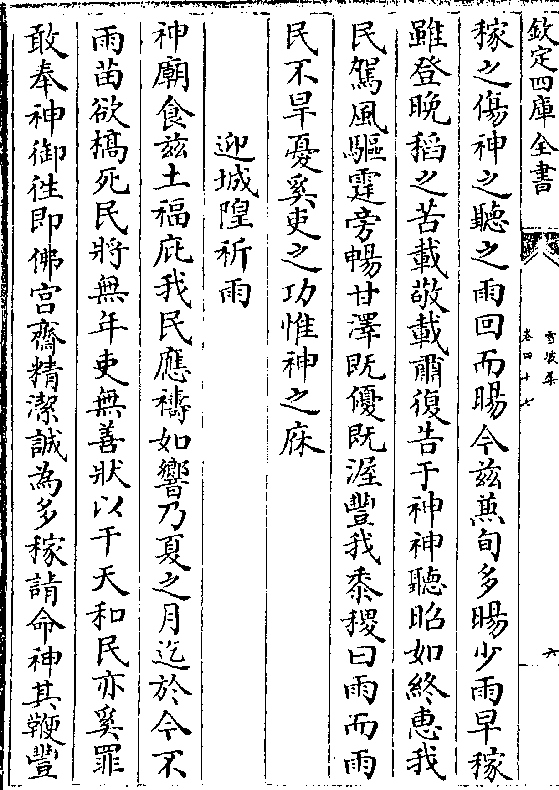 欽定四庫全書
卷四十七
六
稼之傷神之聽之雨回而暘今兹蕪旬多暘少雨早稼
雖登晩稻之苦載敬載肅復告于神神聽昭如終惠我
民駕風驅霆旁暢甘澤既優既渥豐我黍稷曰雨而雨
民不旱憂奚吏之功惟神之庥
迎城隍祈雨
神廟食兹土福庇我民應禱如響乃夏之月迄於今不
雨苗欲槁死民將無年吏無善狀以干天和民亦奚罪
敢奉神御徃即佛宫齋精潔誠為多稼請命神其鞭豐